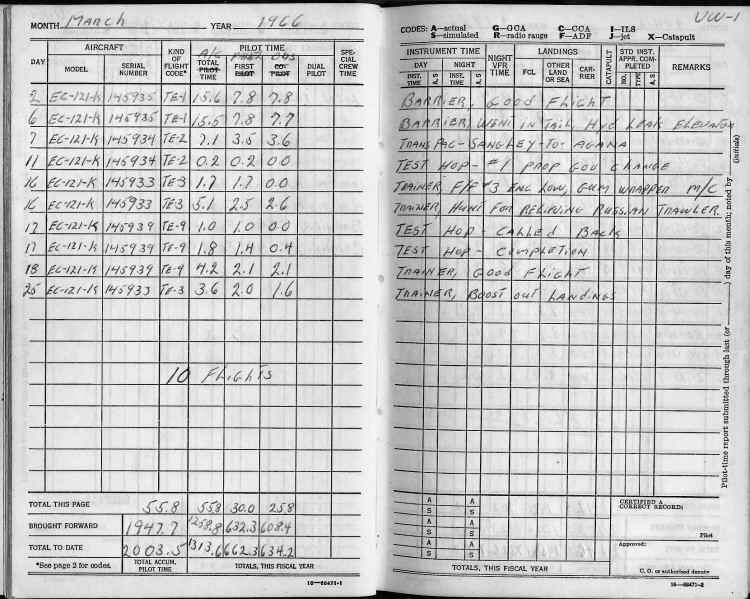 MONTH March YEAR 1966
AIRCRAFT KIND OF FLIGHT CODE* A/C PILOT OBS PILOT TIME SPECIAL CREW TIME
DAY MODEL SERIAL NUMBER TOTAL PILOT TIME FIRST PILOT CO-PILOT DUAL PILOT
2 EC-121-K 145935 TE-1 15.6 7.8 7.8
6 EC-121-K 145935 TE-1 15.5 7.8 7.7
7 EC-121-K 145934 TE-2 7.1 3.5 3.6
11 EC-121-K 145934 TE-2 0.2 0.2 0.0
16 EC-121-K 145933 TE-3 1.7 1.7 0.0
16 EC-121-K 145933 TE-3 5.1 2.5 2.6
17 EC-121-K 145939 TE-9 1.0 1.0 0.0
17 EC-121-K 145939 TE-9 1.8 1.4 0.4
18 EC-121-K 145939 TE-9 4.2 2.1 2.1
25 EC-121-K 145933 TE-3 3.6 2.0 1.6
10 Flights
TOTAL THIS PAGE 55.8 55.8 30.0 25.8
BROUGHT FORWARD 1947.7 1258.8 632.3 608.4
TOTAL TO DATE 2003.5 1313.6 662.3 634.2
*See page 2 for codes. TOTAL ACCUM. PILOT TIME TOTALS, THIS FISCAL YEAR
16—66471-1
UW-1
CODES: A—actual G—GCA C—CCA I—ILS
S—simulated R—radio range F—ADF J—jet X—Catapult
INSTRUMENT TIME NIGHT VFR TIME LANDINGS CATAPULT STD INST. APPR. COMPLETED REMARKS
DAY NIGHT FCL OTHER LAND OR SEA CARRIER NO. TYPE A, S
INST. TIME A, S INST. TIME A, S
BARRIER, Good Flight
BARRIER, WENT IN TAIL, Hyd LEAK ELEVATOR
TRANS PAC-SANGLEY-TO-AGANA
TEST HOP - #1 PROP GOV CHANGE
TRAINER, F/F #3 ENG LOW, GUM WRAPPER M/C
TRAINER, HUNT FOR RELIEVING RUSSIAN TRAWLER
TEST HOP - CALLED BACK
TEST HOP - COMPLETION
TRAINER, GOOD FLIGHT
TRAINER, BOOST OUT LANDINGS
Pilot-time report submitted through last (or ____) day of this month; noted by ____ (initials)
A A CERTIFIED A CORRECT RECORD:
S S
A A Pilot
S S
A A Approved:
S S
TOTALS, THIS FISCAL YEAR C. O. or authorized deputy
16—66471-2